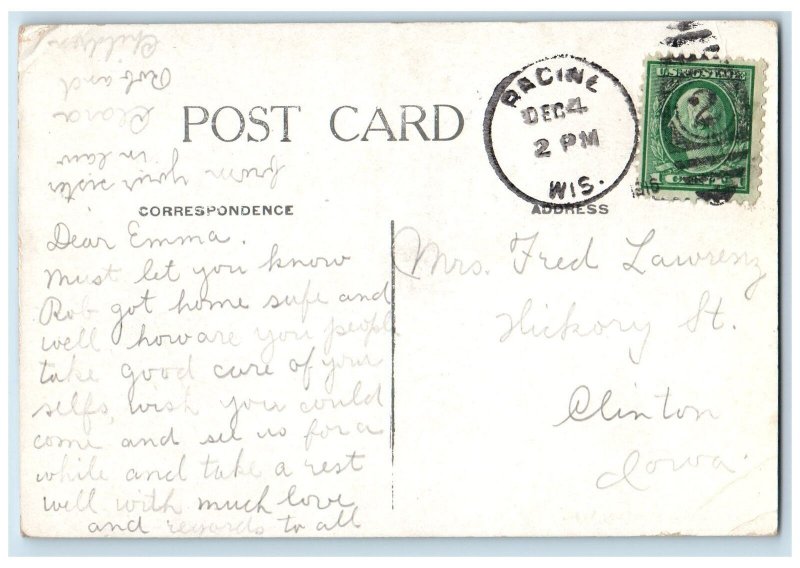 POST CARD
RACINE
DEC 4
2 PM
1916
WIS.
CORRESPONDENCE
ADDRESS
Dear Emma.
Must let you know
Rob got home safe and
well how are you people
take good care of your
selfs, wish you could
come and see us for a
while and take a rest
well with much love
and regards to all
from your sister
in law
Clara
Rob and
Children
Mrs. Fred Lawrenz
Hickory St.
Clinton
Iowa.